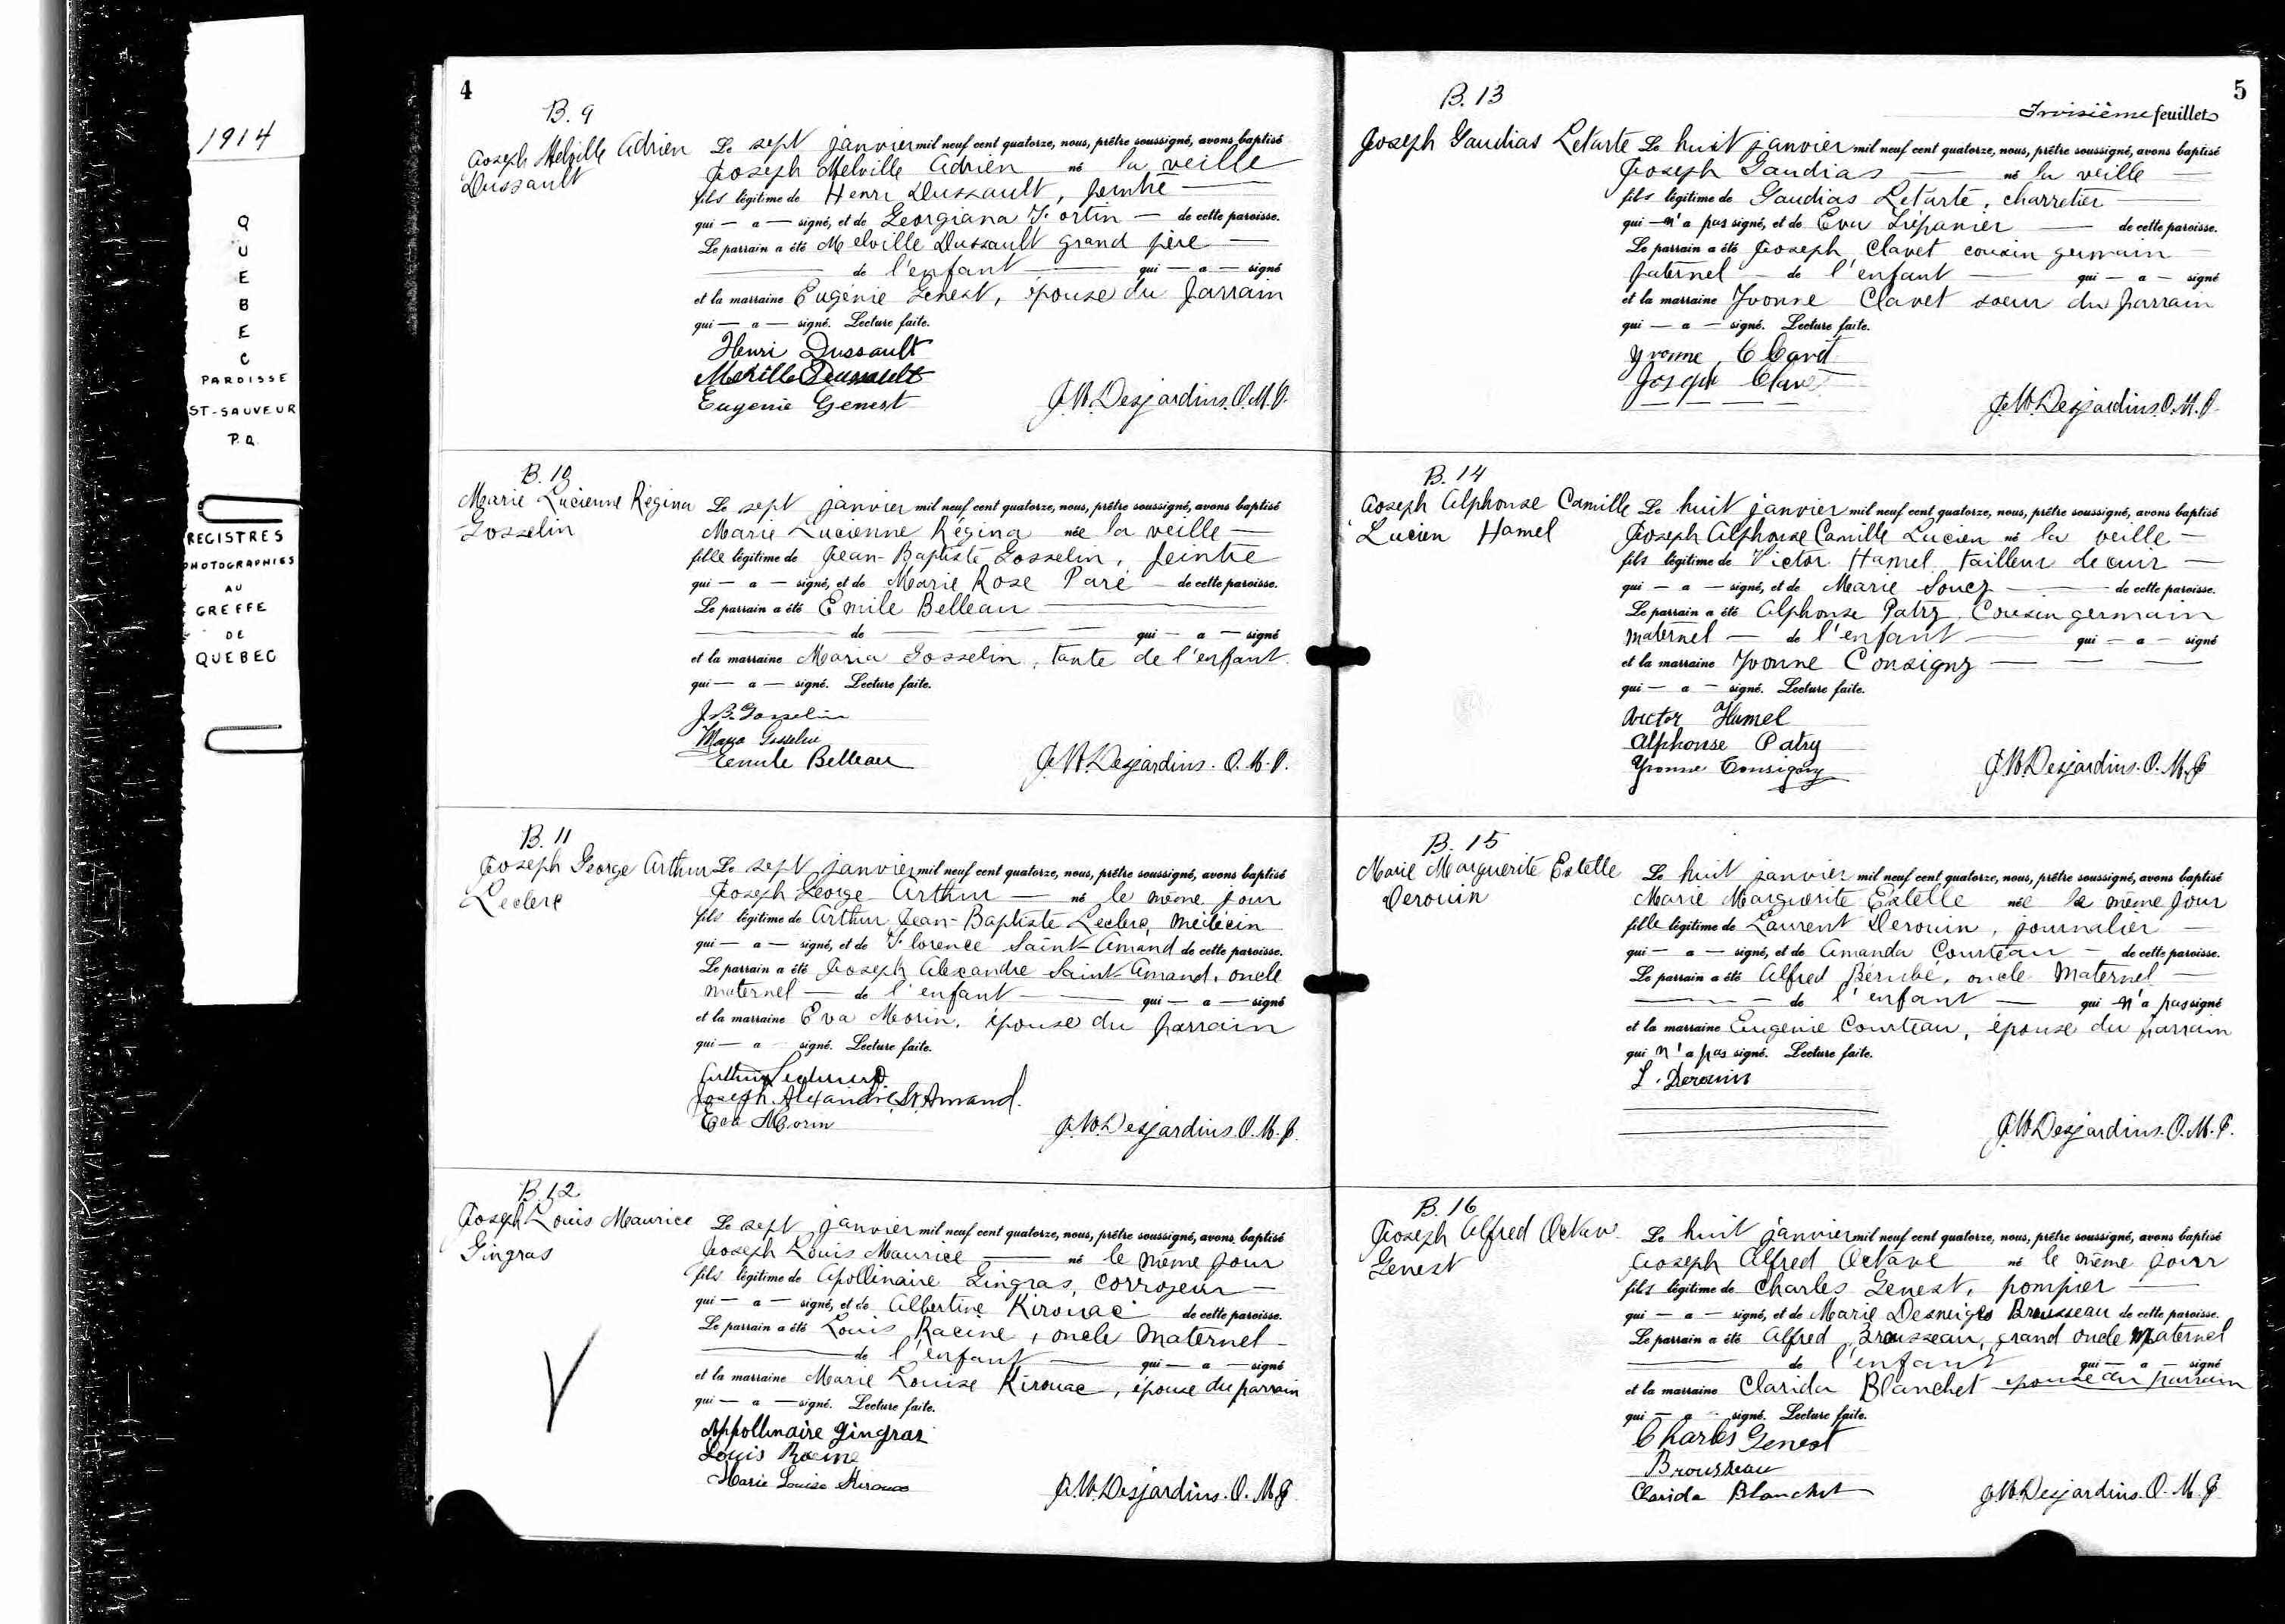 1914
QUEBEC
PAROISSE
ST-SAUVEUR
P.Q.
REGISTRES
PHOTOGRAPHIES
AU
GREFFE
DE
QUEBEC
4
B. 9
Joseph Melville Adrien
Dussault
Le sept janvier mil neuf cent quatorze, nous, prêtre soussigné, avons baptisé
Joseph Melville Adrien né la veille
fils légitime de Henri Dussault, peintre
qui — a — signé, et de Georgiana Fortin — de cette paroisse.
Le parrain a été Melville Dussault grand père
de l'enfant qui — a — signé
et la marraine Eugénie Genest, épouse du parrain
qui — a — signé. Lecture faite.
Henri Dussault
Melville Dussault
Eugenie Genest
J. W. Desjardins. O.M.I.
B. 10
Marie Lucienne Régina
Gosselin
Le sept janvier mil neuf cent quatorze, nous, prêtre soussigné, avons baptisé
Marie Lucienne Régina née la veille
fille légitime de Jean-Baptiste Gosselin, peintre
qui — a — signé, et de Marie Rose Paré — de cette paroisse.
Le parrain a été Emile Belleau
de qui — a — signé
et la marraine Maria Gosselin, tante de l'enfant
qui — a — signé. Lecture faite.
J. B. Gosselin
Gosselin
Emile Belleau
J. W. Desjardins. O.M.I.
B. 11
Joseph George Arthur
Leclerc
Le sept janvier mil neuf cent quatorze, nous, prêtre soussigné, avons baptisé
Joseph George Arthur — né le même jour
fils légitime de Arthur Jean-Baptiste Leclerc, médecin
qui — a — signé, et de Florence Saint-Amand de cette paroisse.
Le parrain a été Joseph Alexandre Saint Amand, oncle
maternel — de l'enfant — qui — a — signé
et la marraine Eva Morin, épouse du parrain
qui — a signé. Lecture faite.
Arthur
Joseph Alexandre St. Amand.
Eva Morin
J. W. Desjardins. O.M.I.
B. 12
Joseph Louis Maurice
Gingras
Le sept janvier mil neuf cent quatorze, nous, prêtre soussigné, avons baptisé
Joseph Louis Maurice — né le même jour
fils légitime de Apollinaire Gingras, corroyeur
qui — a — signé, et de Albertine Kirouac de cette paroisse.
Le parrain a été Louis Racine, oncle maternel
de l'enfant — qui — a — signé
et la marraine Marie Louise Kirouac, épouse du parrain
qui — a — signé. Lecture faite.
Appollinaire Gingras
Louis Racine
Marie Louise Kirouac
J. W. Desjardins. O.M.I.
5
Troisième feuillet
B. 13
Joseph Gaudias Letarte
Le huit janvier mil neuf cent quatorze, nous, prêtre soussigné, avons baptisé
Joseph Gaudias — né la veille
fils légitime de Gaudias Letarte, charretier
qui — n'a pas signé, et de Eva Trépanier — de cette paroisse.
Le parrain a été Joseph Clavet cousin germain
paternel — de l'enfant — qui — a — signé
et la marraine Yvonne Clavet soeur du parrain
qui — a — signé. Lecture faite.
Yvonne Clavet
Joseph Clavet
J. W. Desjardins. O.M.I.
B. 14
Joseph Alphonse Camille
Lucien Hamel
Le huit janvier mil neuf cent quatorze, nous, prêtre soussigné, avons baptisé
Joseph Alphonse Camille Lucien né la veille —
fils légitime de Victor Hamel, tailleur de cuir —
qui — a — signé, et de Marie Soucy — de cette paroisse.
Le parrain a été Alphonse Patry, Cousin germain
maternel — de l'enfant — qui — a — signé
et la marraine Yvonne Consigny — — —
qui — a — signé. Lecture faite.
Victor Hamel
Alphonse Patry
Yvonne Consigny
J. W. Desjardins. O.M.I.
B. 15
Marie Marguerite Estelle
Derouin
Le huit janvier mil neuf cent quatorze, nous, prêtre soussigné, avons baptisé
Marie Marguerite Estelle née le même jour
fille légitime de Laurent Derouin, journalier —
qui — a — signé, et de Amanda Courteau — de cette paroisse.
Le parrain a été Alfred Bérubé, oncle maternel —
de l'enfant — qui n'a pas signé
et la marraine Eugénie Courteau, épouse du parrain
qui n'a pas signé. Lecture faite.
L. Derouin
J. W. Desjardins. O.M.I.
B. 16
Joseph Alfred Octave
Genest
Le huit janvier mil neuf cent quatorze, nous, prêtre soussigné, avons baptisé
Joseph Alfred Octave né le même jour
fils légitime de Charles Genest, pompier —
qui — a — signé, et de Marie Desneiges Brousseau de cette paroisse.
Le parrain a été Alfred Brousseau, grand oncle maternel
de l'enfant qui — a — signé
et la marraine Clarida Blanchet épouse du parrain
qui — a — signé. Lecture faite.
Charles Genest
Brousseau
Clarida Blanchet
J. W. Desjardins. O.M.I.